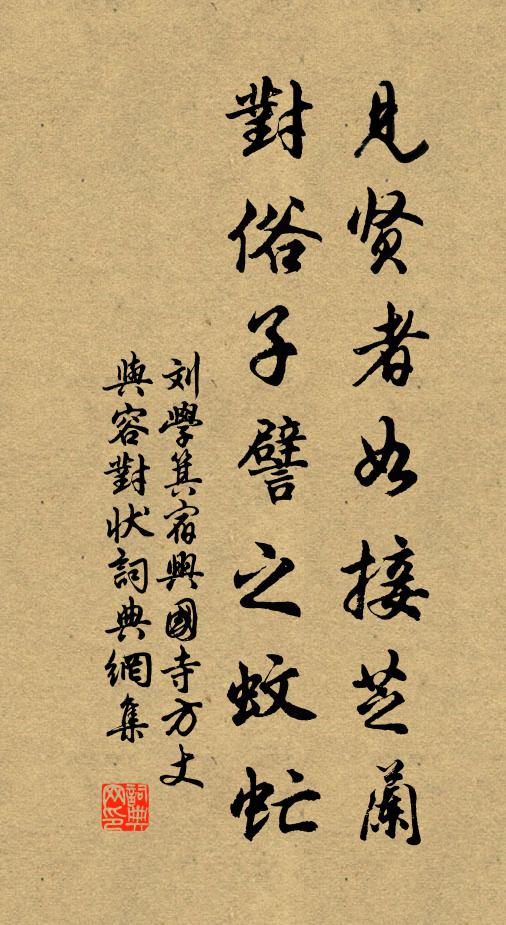 見贤者如接芝蘭
對俗子譬之蚊虻
刘學箕宿興國寺方丈
與容對状詞典網集
詞典網印